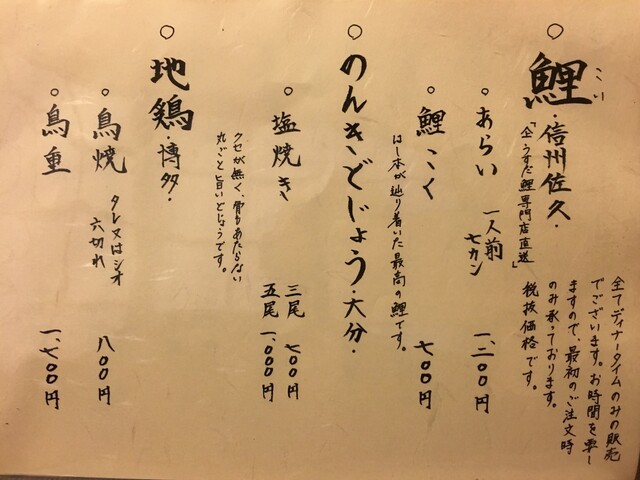 ○
鯉・信州佐久・
こい
「㊎うすだ鯉専門店直送」
全てディナータイムのみの販売
でございます。お時間を要し
ますので、最初のご注文時
のみ承っております。
税抜価格です。
○あらい 一人前 七カン 一、二〇〇円
○鯉こく 七〇〇円
はし本が辿り着いた最高の鯉です。
○
のんきどじょう・大分・
○塩焼き 三尾 七〇〇円
五尾 一、〇〇〇円
クセが無く、骨もあたらない
丸ごと旨いどじょうです。
○
地鶏・博多・
○鳥焼 タレ又はシオ
六切れ 八〇〇円
○鳥重 一、七〇〇円